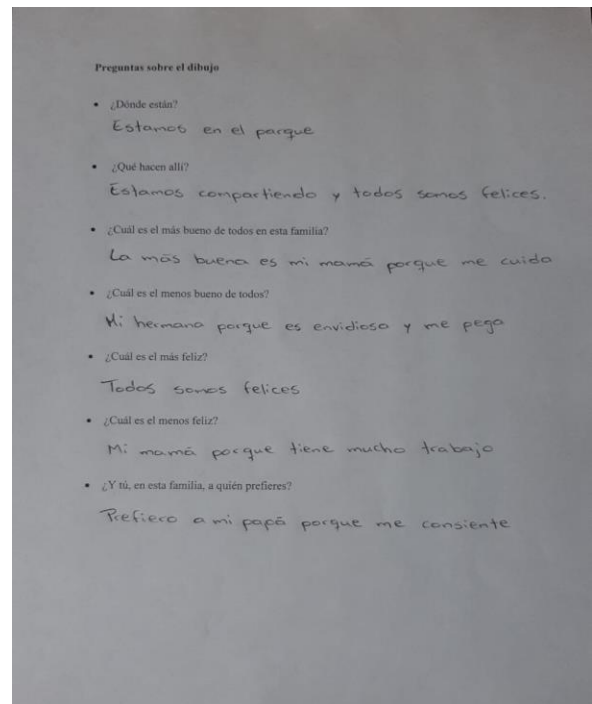 Preguntas sobre el dibujo
• ¿Dónde están?
Estamos en el parque
• ¿Qué hacen allí?
Estamos compartiendo y todos somos felices.
• ¿Cuál es el más bueno de todos en esta familia?
La más buena es mi mamá porque me cuida
• ¿Cuál es el menos bueno de todos?
Mi hermana porque es envidiosa y me pega
• ¿Cuál es el más feliz?
Todos somos felices
• ¿Cuál es el menos feliz?
Mi mamá porque tiene mucho trabajo
• ¿Y tú, en esta familia, a quién prefieres?
Prefiero a mi papá porque me consiente